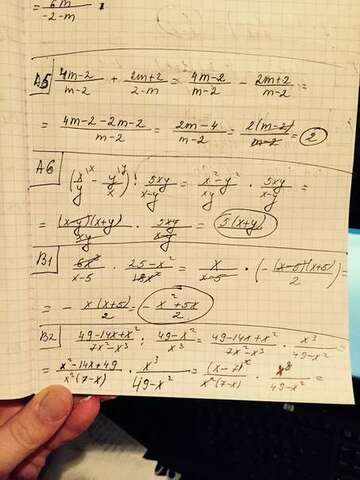 = 6m / -2-m
A5 (4m-2)/(m-2) + (2m+2)/(2-m) = (4m-2)/(m-2) - (2m+2)/(m-2) =
= (4m-2-2m-2)/(m-2) = (2m-4)/(m-2) = 2(m-2)/(m-2) = 2
A6 (x/y - y/x) : 5xy/(x-y) = (x²-y²)/xy · 5xy/(x-y) =
= (x-y)(x+y)/xy · 5xy/(x-y) = 5(x+y)
B1 6x³/(x-5) · (25-x²)/18x² = x/(x-5) · (-(x-5)(x+5)/2) =
= - x(x+5)/2 = - (x²+5x)/2
B2 (49-14x+x²)/(7x²-x³) : (49-x²)/x³ = (49-14x+x²)/(7x²-x³) · x³/(49-x²) =
= (x²-14x+49)/(x²(7-x)) · x³/(49-x²) = (x-7)²/(x²(7-x)) · x³/(49-x²) =